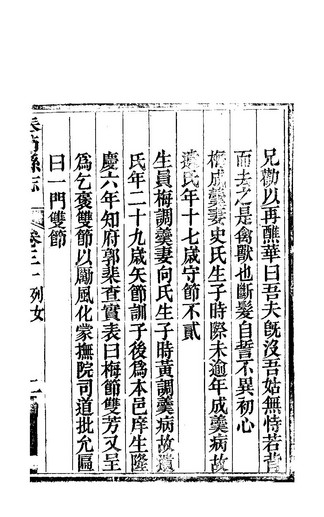 兄勸以再醮華曰吾夫旣沒吾姑無恃若背
而去之是禽獸也斷髮自誓不異初心
梅成羹妻史氏生子時際未逾年成羹病故
遺氏年十七歲守節不貳
生員梅調羹妻向氏生子時黃調羹病故遺
氏年二十九歲矢節訓子後爲本邑庠生隆
慶六年知府郭棐查實表曰梅節雙芳又呈
爲乞褒雙節以勵風化蒙撫院司道批允匾
曰一門雙節
縣志
卷三十
列女
二